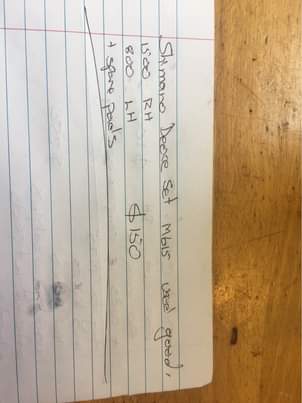 Shimano Deore set M615 used good.
1500 RH
800 LH $150
+ spare pads